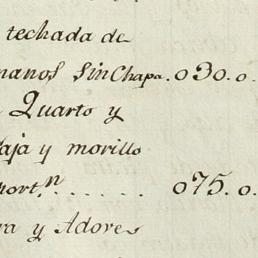 techada de
manos Sin Chapa. 030.0.
Quarto y
aja y morillo
mort.n . . . . . . 075.0.
ra y Adores